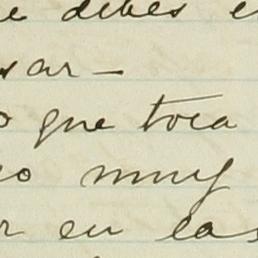 e debes e
sar—
o que toca
so muy
r en las